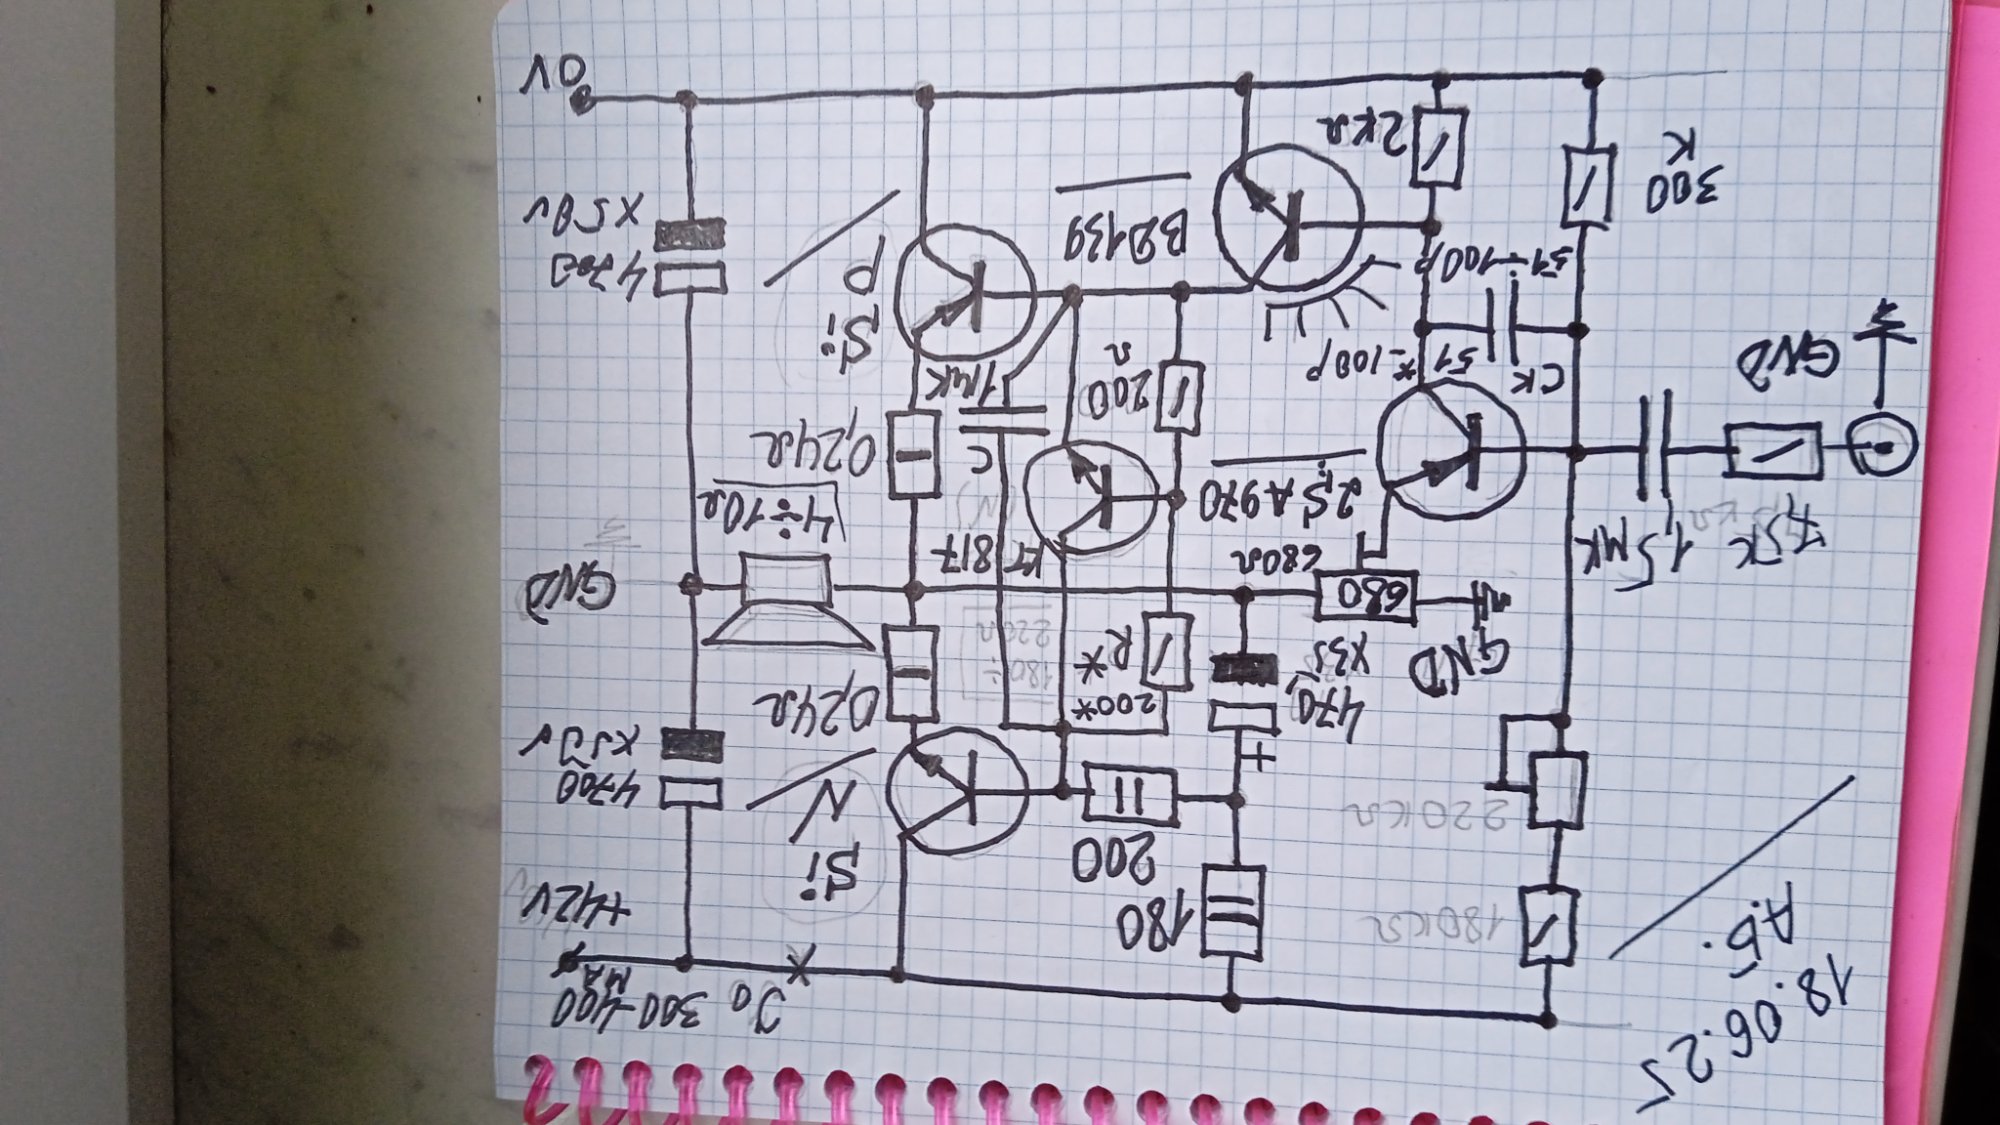 18.06.25
А.Б.
J0 300-400
мА
+42V
180KΩ
180
200
Si
N
4700
x50v
220KΩ
+
470,
x35
200*
R*
180÷
220Ω
0,24Ω
GND
680
680Ω
КТ
817
GND
7,5K
1,5мк
2SA970
4÷10Ω
C
1мк
0,24Ω
GND
CK
51
*-100p
200
Ω
Si
P
51÷100p
4700
x50v
300
K
2KΩ
BD139
0V